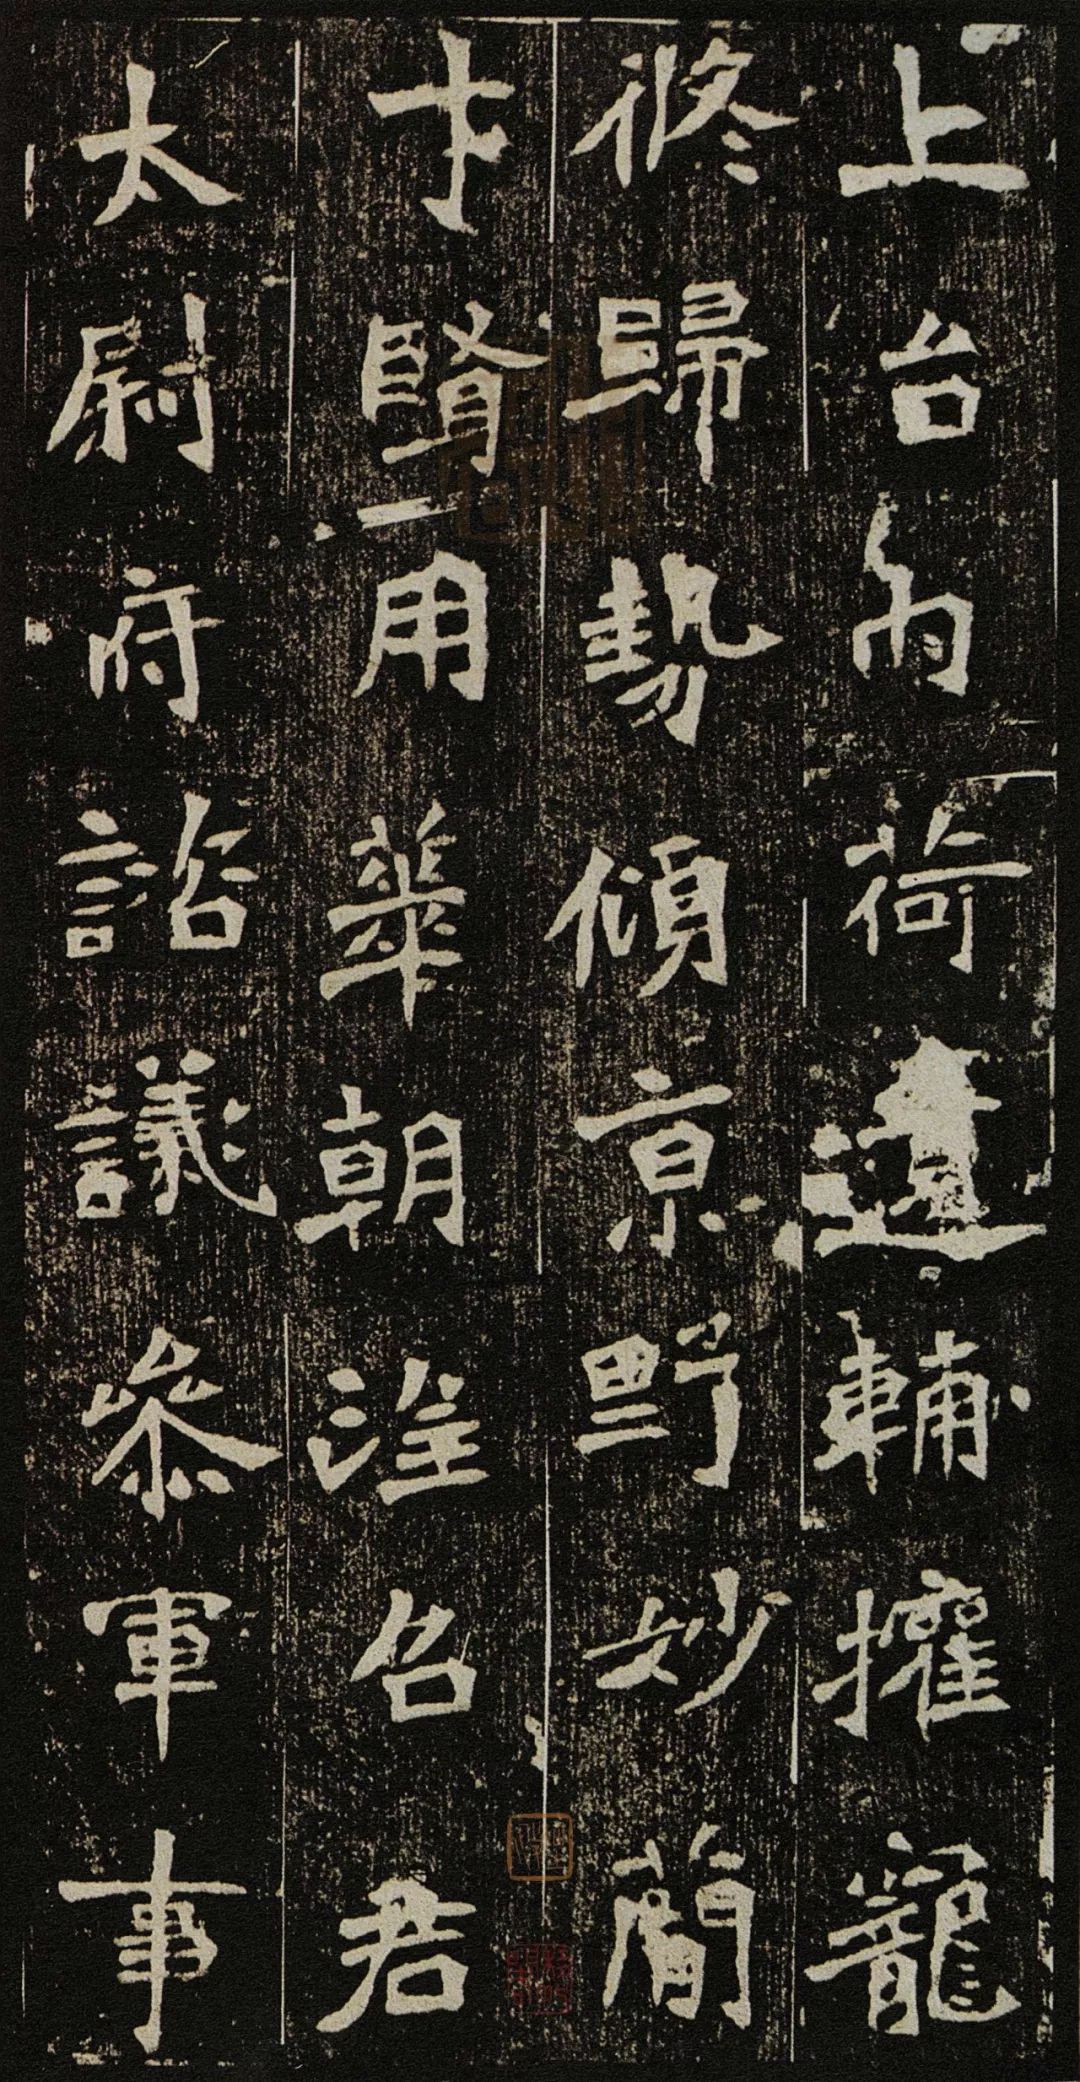 上台內荷遺輔權寵
攸歸勢傾京野妙簡
才賢用華朝召君
太尉府諮議參軍事